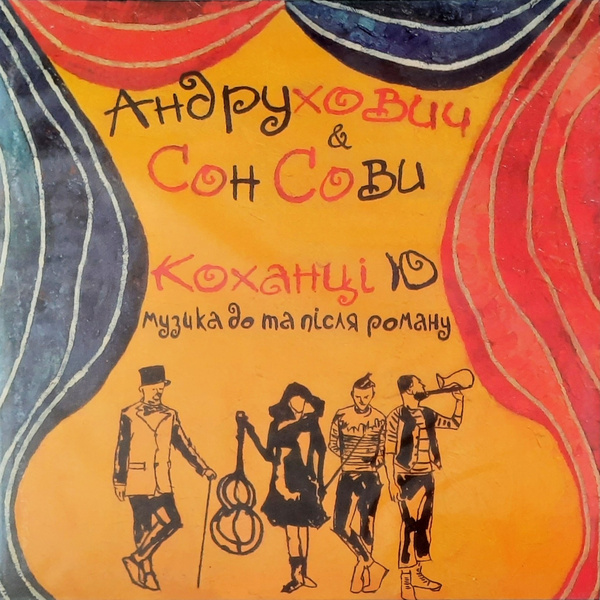 Андрухович
&
Сон Сови
Коханці Ю
музика до та після роману